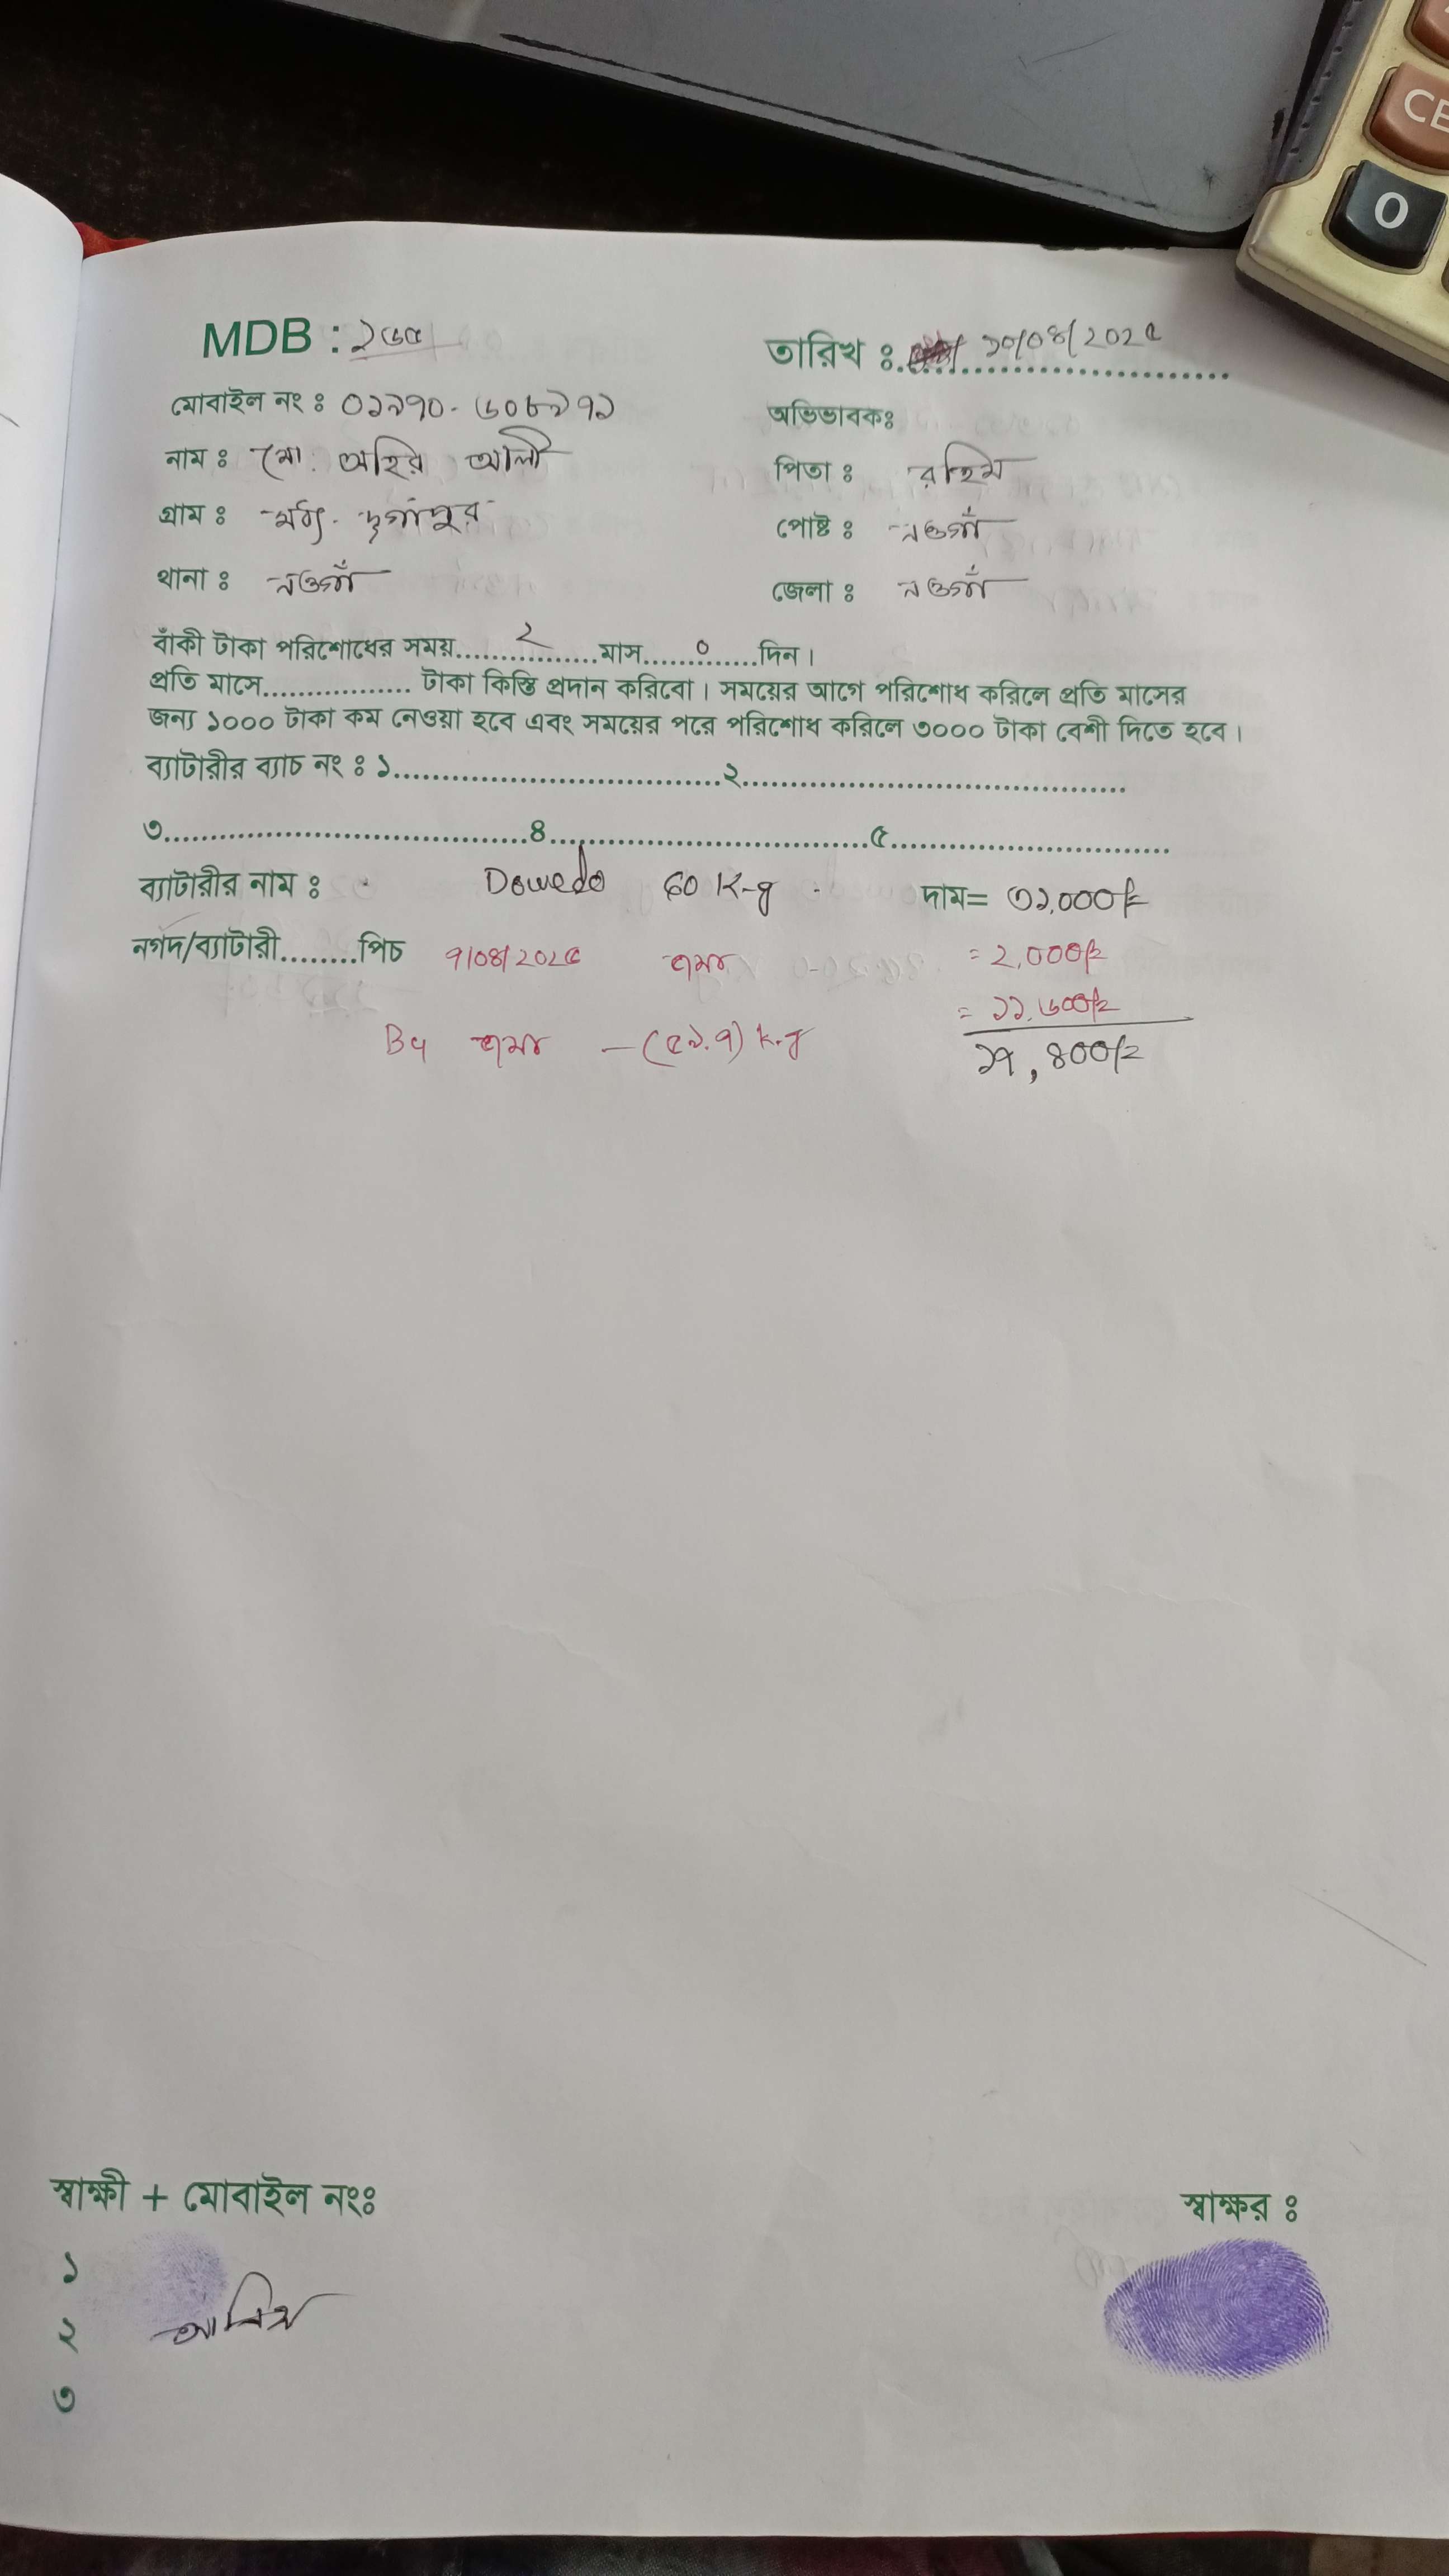 CE
0
MDB : ২৬৫
তারিখ ঃ ১০/০৪/২০২৫
মোবাইল নং ঃ ০১৯৭০-৬০৮৯৭১
অভিভাবকঃ
নাম ঃ মো. অহির আলী
পিতা ঃ রহিম
গ্রাম ঃ মধ্য দুর্গাপুর
পোষ্ট ঃ নওগাঁ
থানা ঃ নওগাঁ
জেলা ঃ নওগাঁ
বাঁকী টাকা পরিশোধের সময়.......২.......মাস.......০.......দিন।
প্রতি মাসে................. টাকা কিস্তি প্রদান করিবো। সময়ের আগে পরিশোধ করিলে প্রতি মাসের
জন্য ১০০০ টাকা কম নেওয়া হবে এবং সময়ের পরে পরিশোধ করিলে ৩০০০ টাকা বেশী দিতে হবে।
ব্যাটারীর ব্যাচ নং ঃ ১........................................২................................................
৩.............................................৪........................................৫...................................
ব্যাটারীর নাম ঃ Dowedo 60 K-g দাম= ৩১,০০০/=
নগদ/ব্যাটারী.........পিচ ৭/০৪/২০২৫ জমা = ২,০০০/=
= ১১,৬০০/=
By জমা - (৫৯.৭) k.g
১৭,৪০০/=
স্বাক্ষী + মোবাইল নংঃ
স্বাক্ষর ঃ
১
২
৩